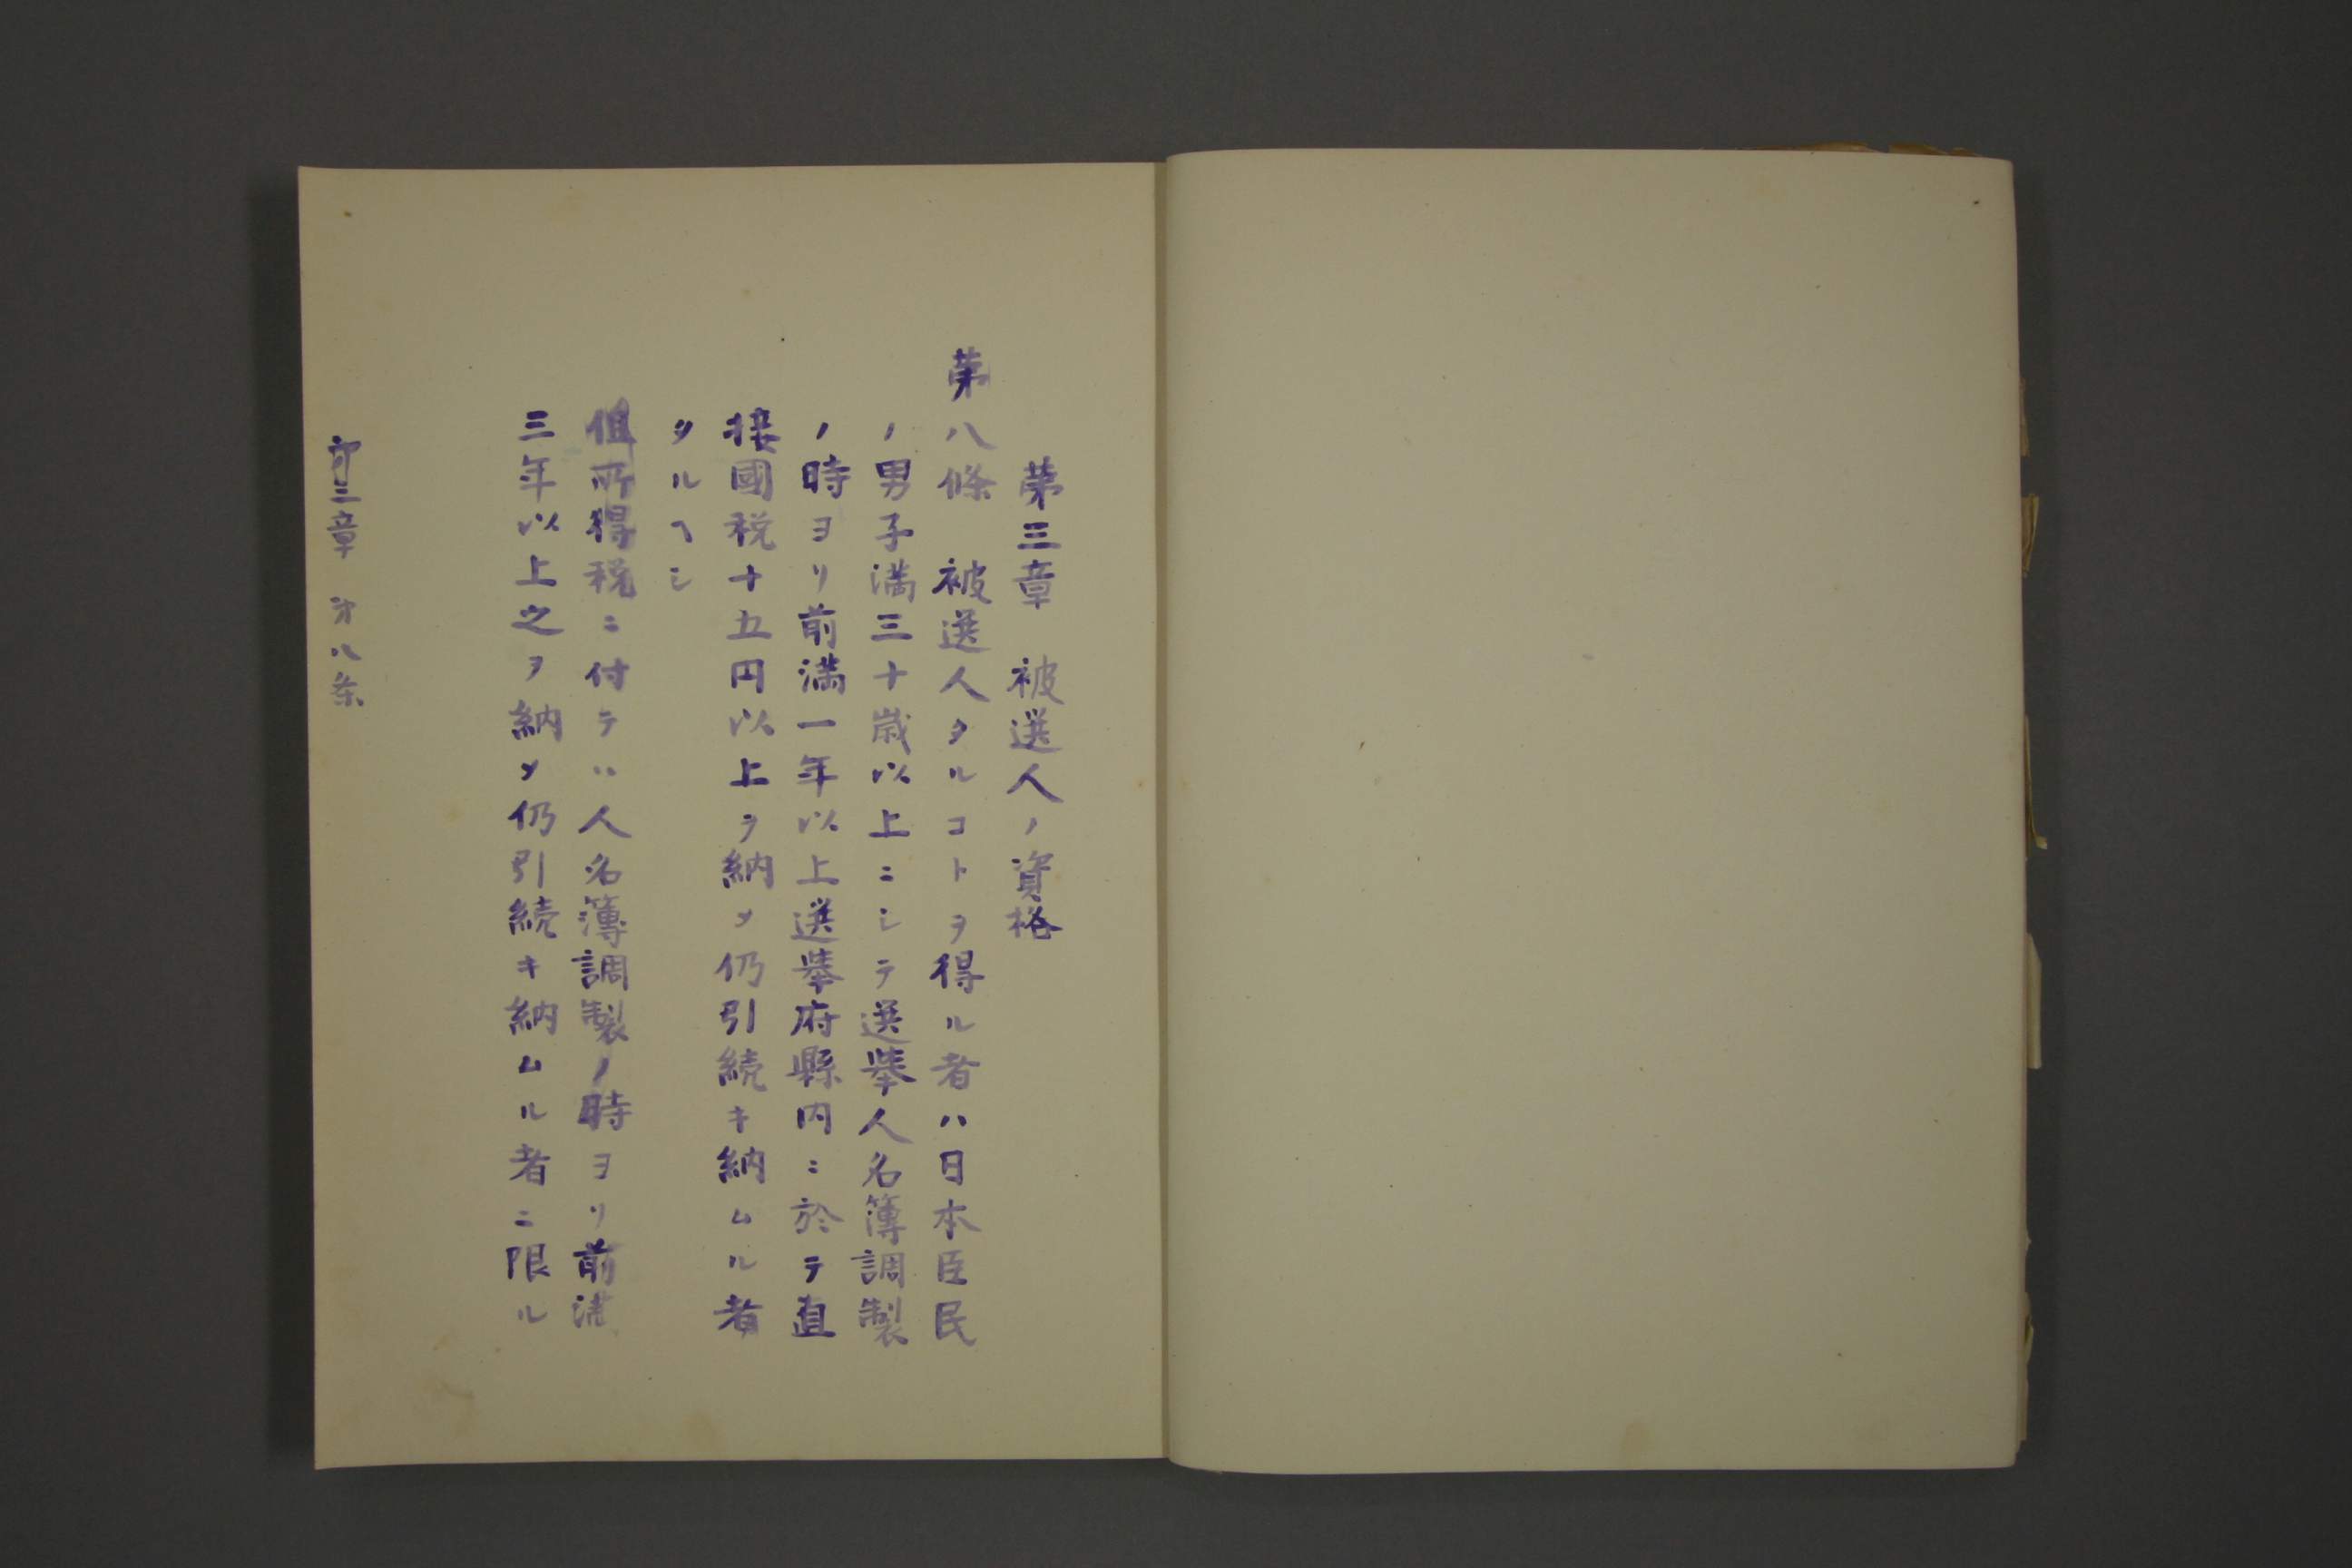 第三章　被選人ノ資格
第八條　被選人タルコトヲ得ル者ハ日本臣民
ノ男子満三十歳以上ニシテ選挙人名簿調製
ノ時ヨリ前満一年以上選挙府縣内ニ於テ直
接國税十五円以上ヲ納メ仍引続キ納ムル者
タルヘシ
但所得税ニ付テハ人名簿調製ノ時ヨリ前満
三年以上之ヲ納メ仍引続キ納ムル者ニ限ル
第三章　第八条